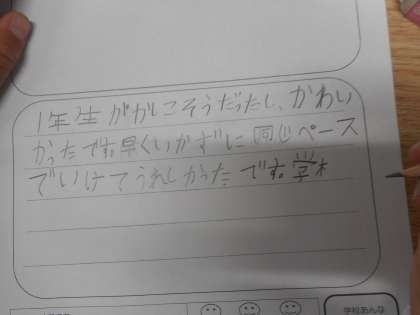 1年生ががしこそうだったし、かわい
かったです。早くいかずに同じペース
でいけてうれしかったです。学木
学校あんな